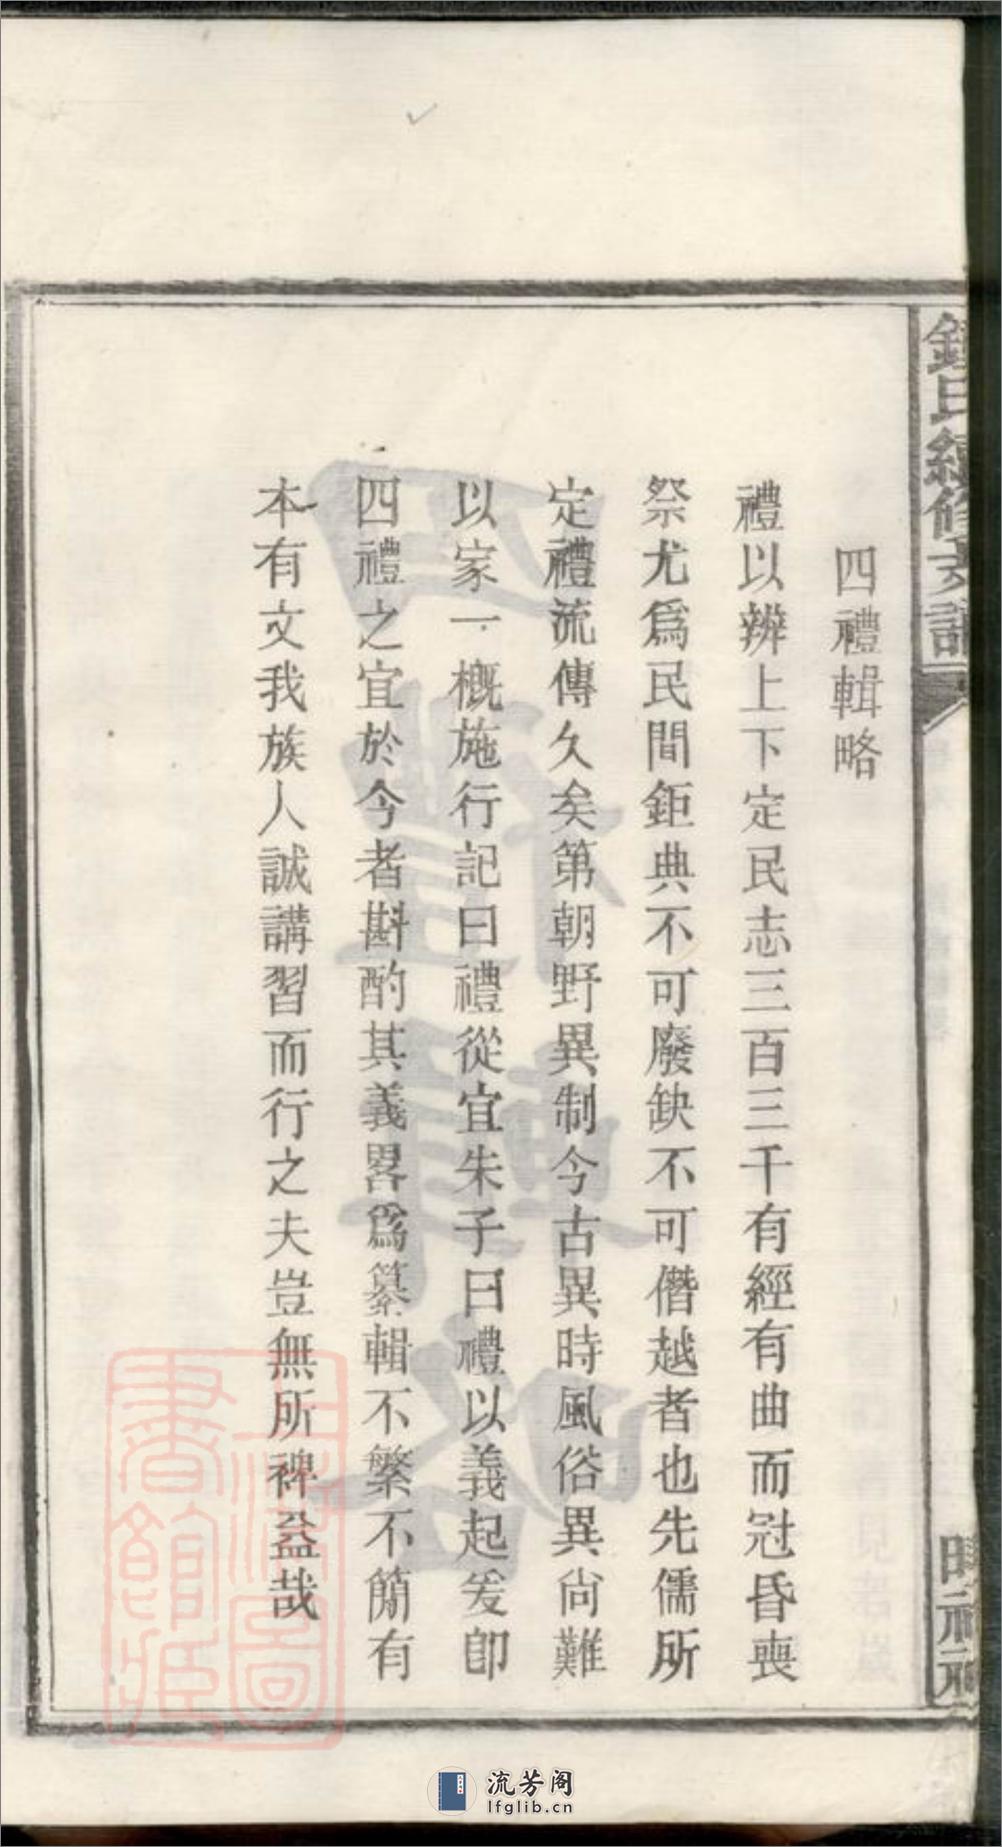 鍾氏續修家譜
四禮輯略
禮以辨上下定民志三百三千有經有曲而冠昏喪
祭尤爲民間鉅典不可廢缺不可僭越者也先儒所
定禮流傳久矣第朝野異制今古異時風俗異尚難
以家一槪施行記曰禮從宜朱子曰禮以義起爰卽
四禮之宜於今者斟酌其義畧爲纂輯不繁不簡有
本有文我族人誠講習而行之夫豈無所裨益哉
上海圖書館藏
流芳阁
lfglib.cn